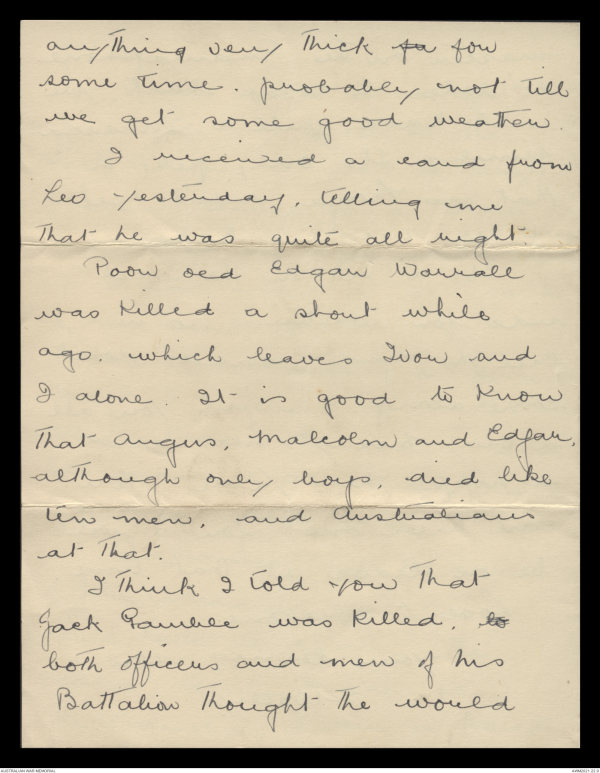 anything very thick <s>fu</s> for
some time. probably not till
we get some good weather.
I received a card from
Leo yesterday, telling me
that he was quite all right.
Poor old Edgar Worrall
was killed a short while
ago. which leaves Ivor and
I alone. It is good to know
that Angus, Malcolm and Edgar,
although only boys, died like
ten men, and Australians
at that.
I think I told you that
Jack Gamble was killed, <s>to</s>
both officers and men of his
Battalion thought the would
AUSTRALIAN WAR MEMORIAL